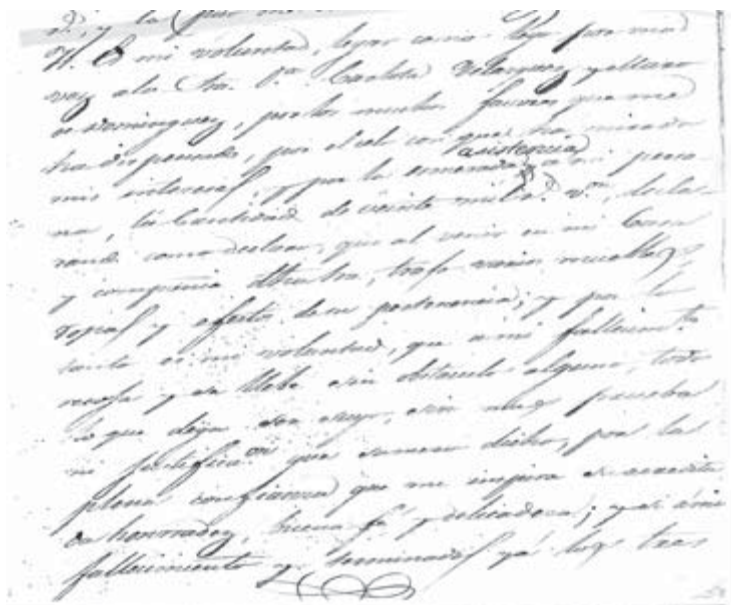 d.ⁿ, y la
Yt. Es mi voluntad, legar como lego por una
vez a la Sra. D.ª Carlota Velazquez y
de Dominguez, por los muchos favores que me
ha dispensado, por el celo con que ha mirado
mis intereses, y por la esmerada asistencia a mi perso
na, la cantidad de veinte mil r.ˢ v.ⁿ, decla
rando como declaro, que al venir en mi Casa
y compañia trajo varios muebles,
ropas y efectos de su pertenencia; y por lo
tanto es mi voluntad, que a mi fallecim.ᵗᵒ
recoja y se llebe sin obstaculo alguno, todo
lo que diga ser suyo, sin mas prueba
ni justificaⁿ que su mero dicho, por la
plena confianza que me inspira su acredita
da honradez, buena fé y delicadeza; y si á mi
fallecimiento y terminados ya los tres